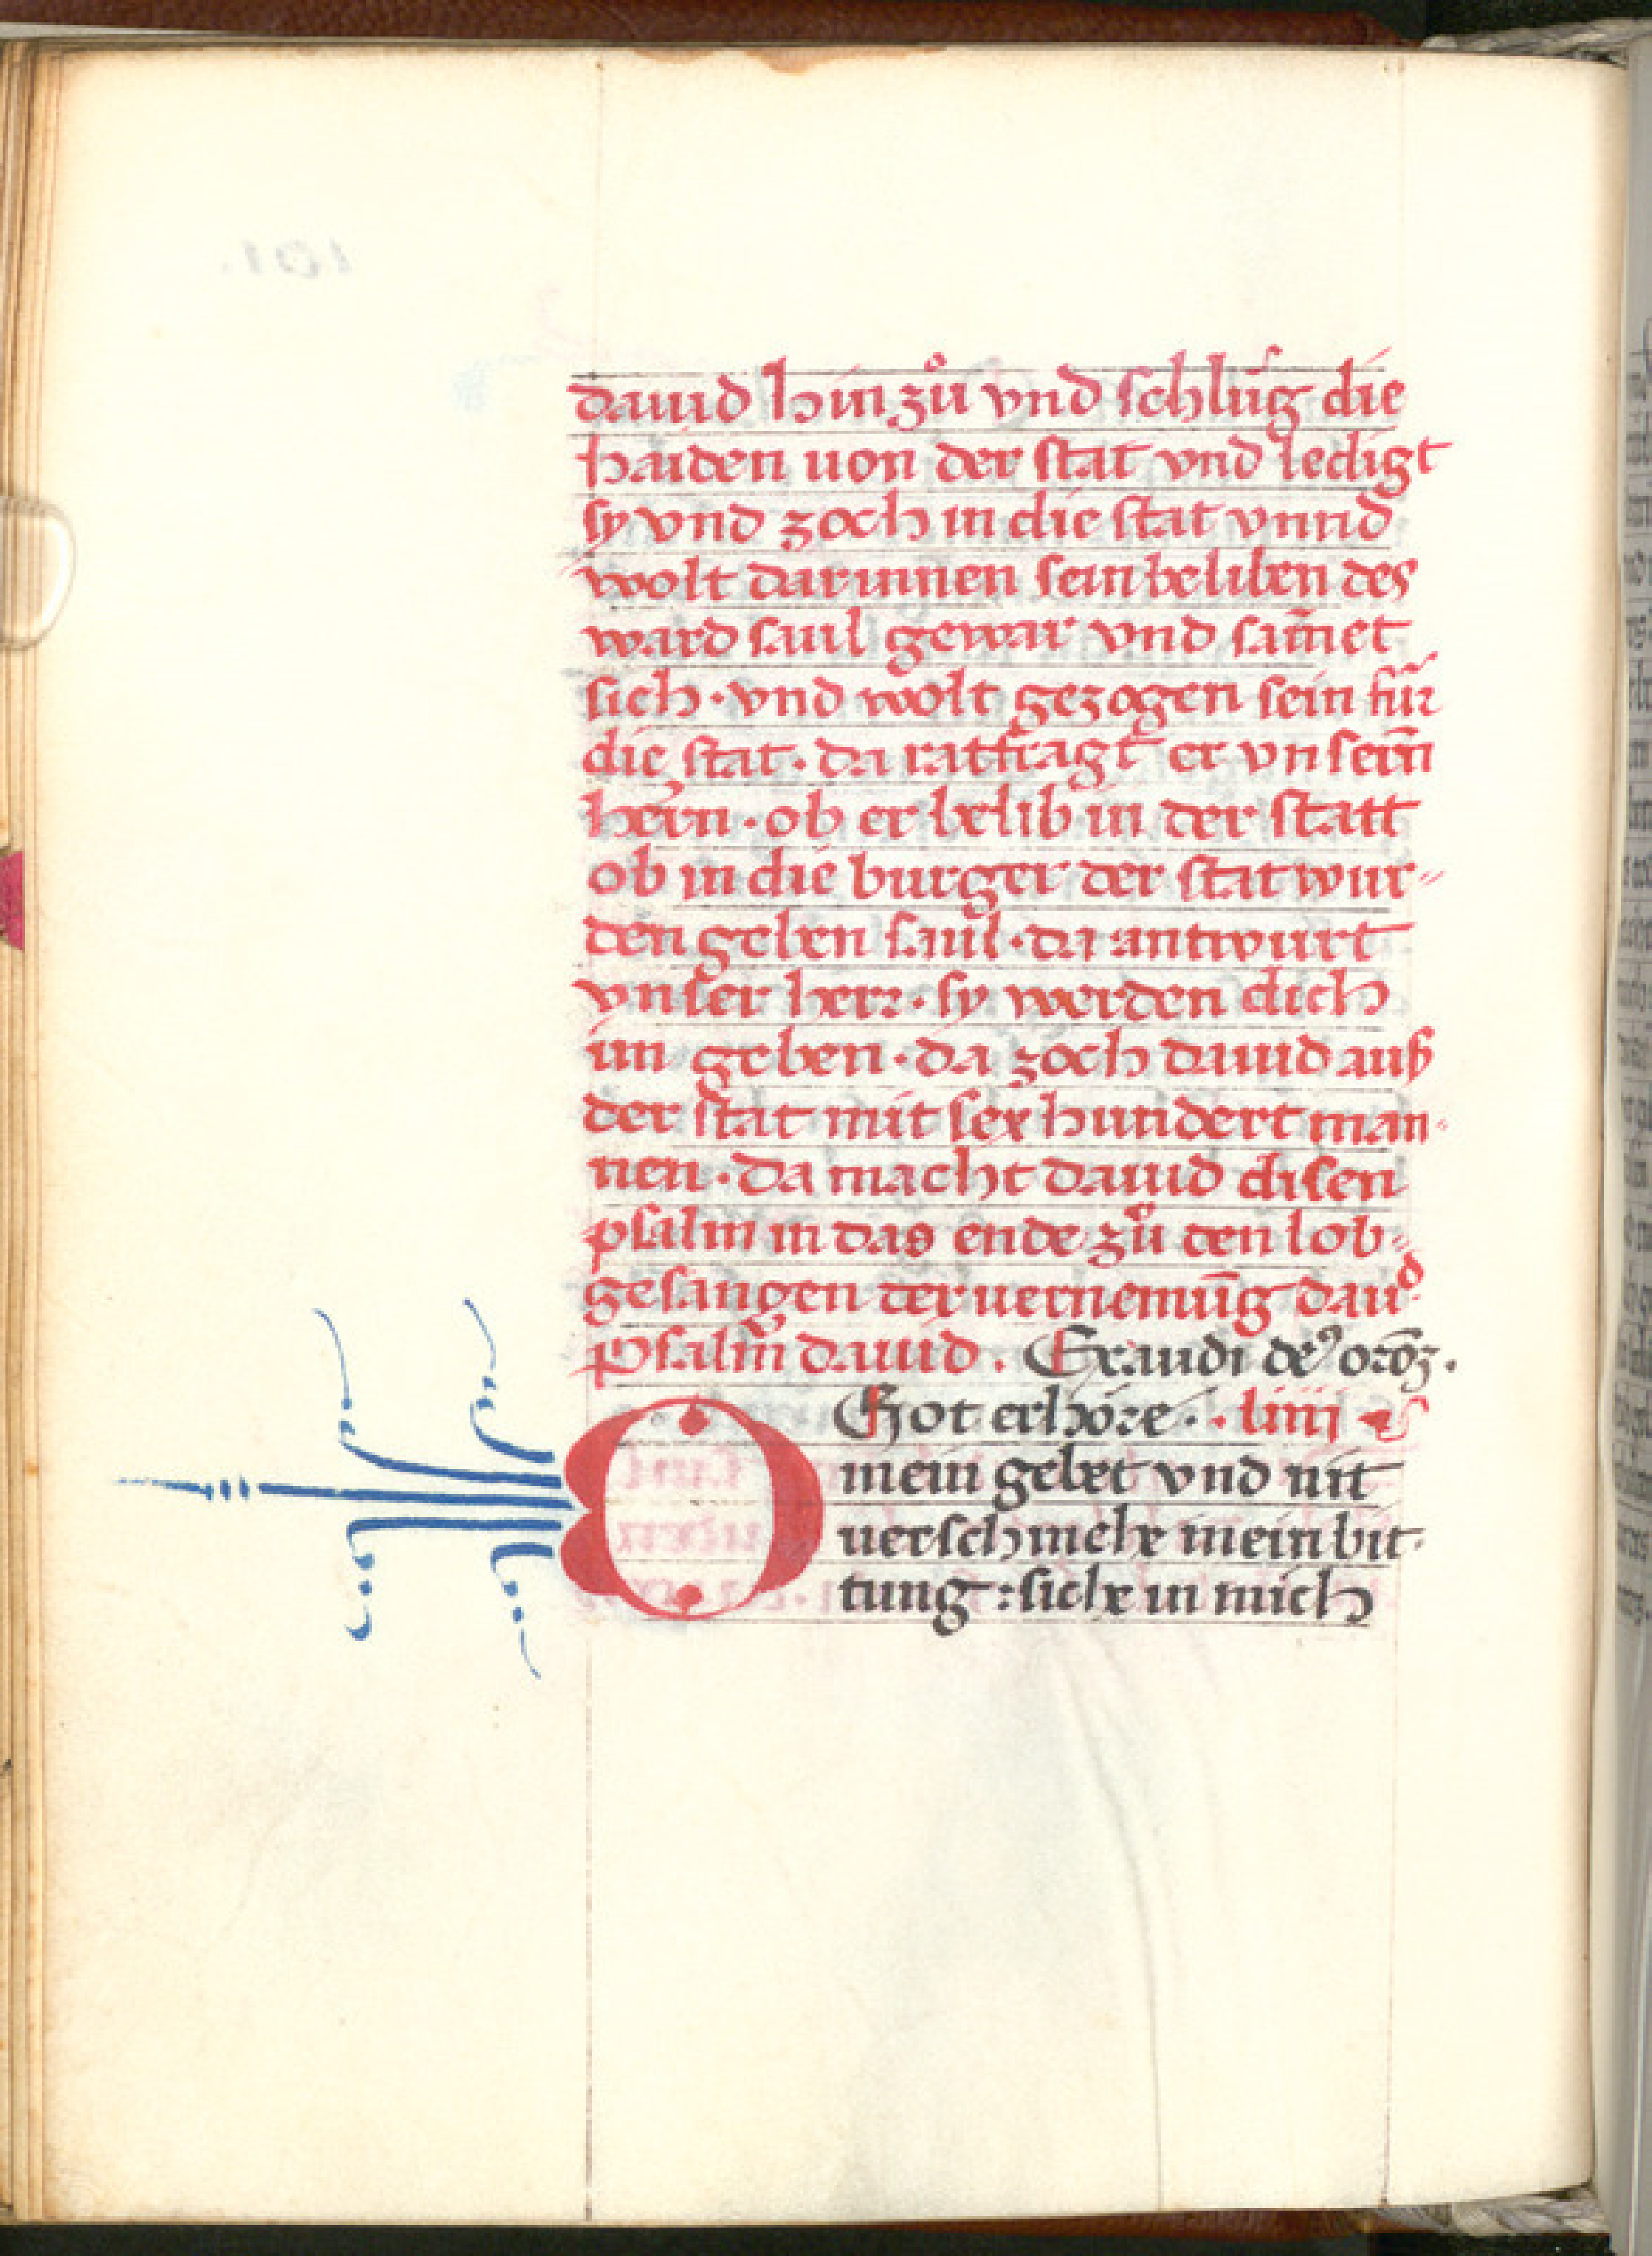 dauid hin zů vnd schlůg die
haiden uon der stat vnd ledigt
sy vnd zoch in die stat vnnd
wolt darinnen sein beliben des
ward saul gewar vnd sam̄et
sich · vnd wolt gezogen sein für
die stat · da ratfragt er vnsern̄
hern · ob er belib in der statt
ob in die burger der stat wur⸗
den geben saul · da antwurt
vnser herr · sy werden dich
im geben · da zoch dauid auß
der stat mit sex hundert man⸗
nen · Da macht dauid disen
psalm in das ende zů den lob⸗
gesangen der uernemūg dauᵈ
Psalm̄ dauid . Exaudi deꝰ orōꝫ .
O Got erhöre · · liiij
mein gebet vnd nit
uerschmehe mein bit⸗
tung : sihe in mich